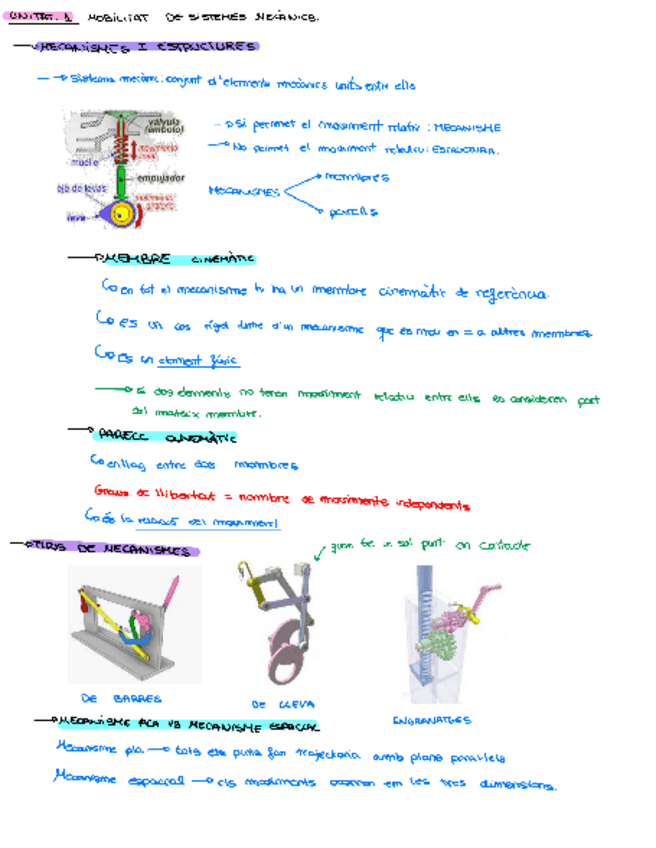 UNITAT. 1 MOBILITAT DE SISTEMES MECÀNICS.
MECANISMES I ESTRUCTURES
Sistema mecànic: conjunt d'elements mecànics units entre ells
Si permet el moviment relatiu: MECANISME
No permet el moviment relatiu: ESTRUCTURA.
MECANISMES
membres
parells
válvula
(émbolo)
movimiento
lineal
muelle
empujador
eje de levas
leva
MEMBRE CINEMÀTIC
en tot el mecanisme hi ha un membre cinemàtic de referència.
es un cos rígid dintre d'un mecanisme que es mou en = a altres membres
es un element físic
si dos elements no tenen moviment relatiu entre ells es consideren part
del mateix membre.
PARELL CINEMÀTIC
enllaç entre dos membres
Graus de llibertat = nombre de moviments independents
és la relació del moviment
TIPUS DE MECANISMES
quan té un sol punt en contacte
DE BARRES
DE LLEVA
ENGRANATGES
MECANISME PLA VS MECANISME ESPACIAL
Mecanisme pla tots els punts fan trajectoria amb plans paral·lels
Mecanisme espacial els moviments ocorren em les tres dimensions.